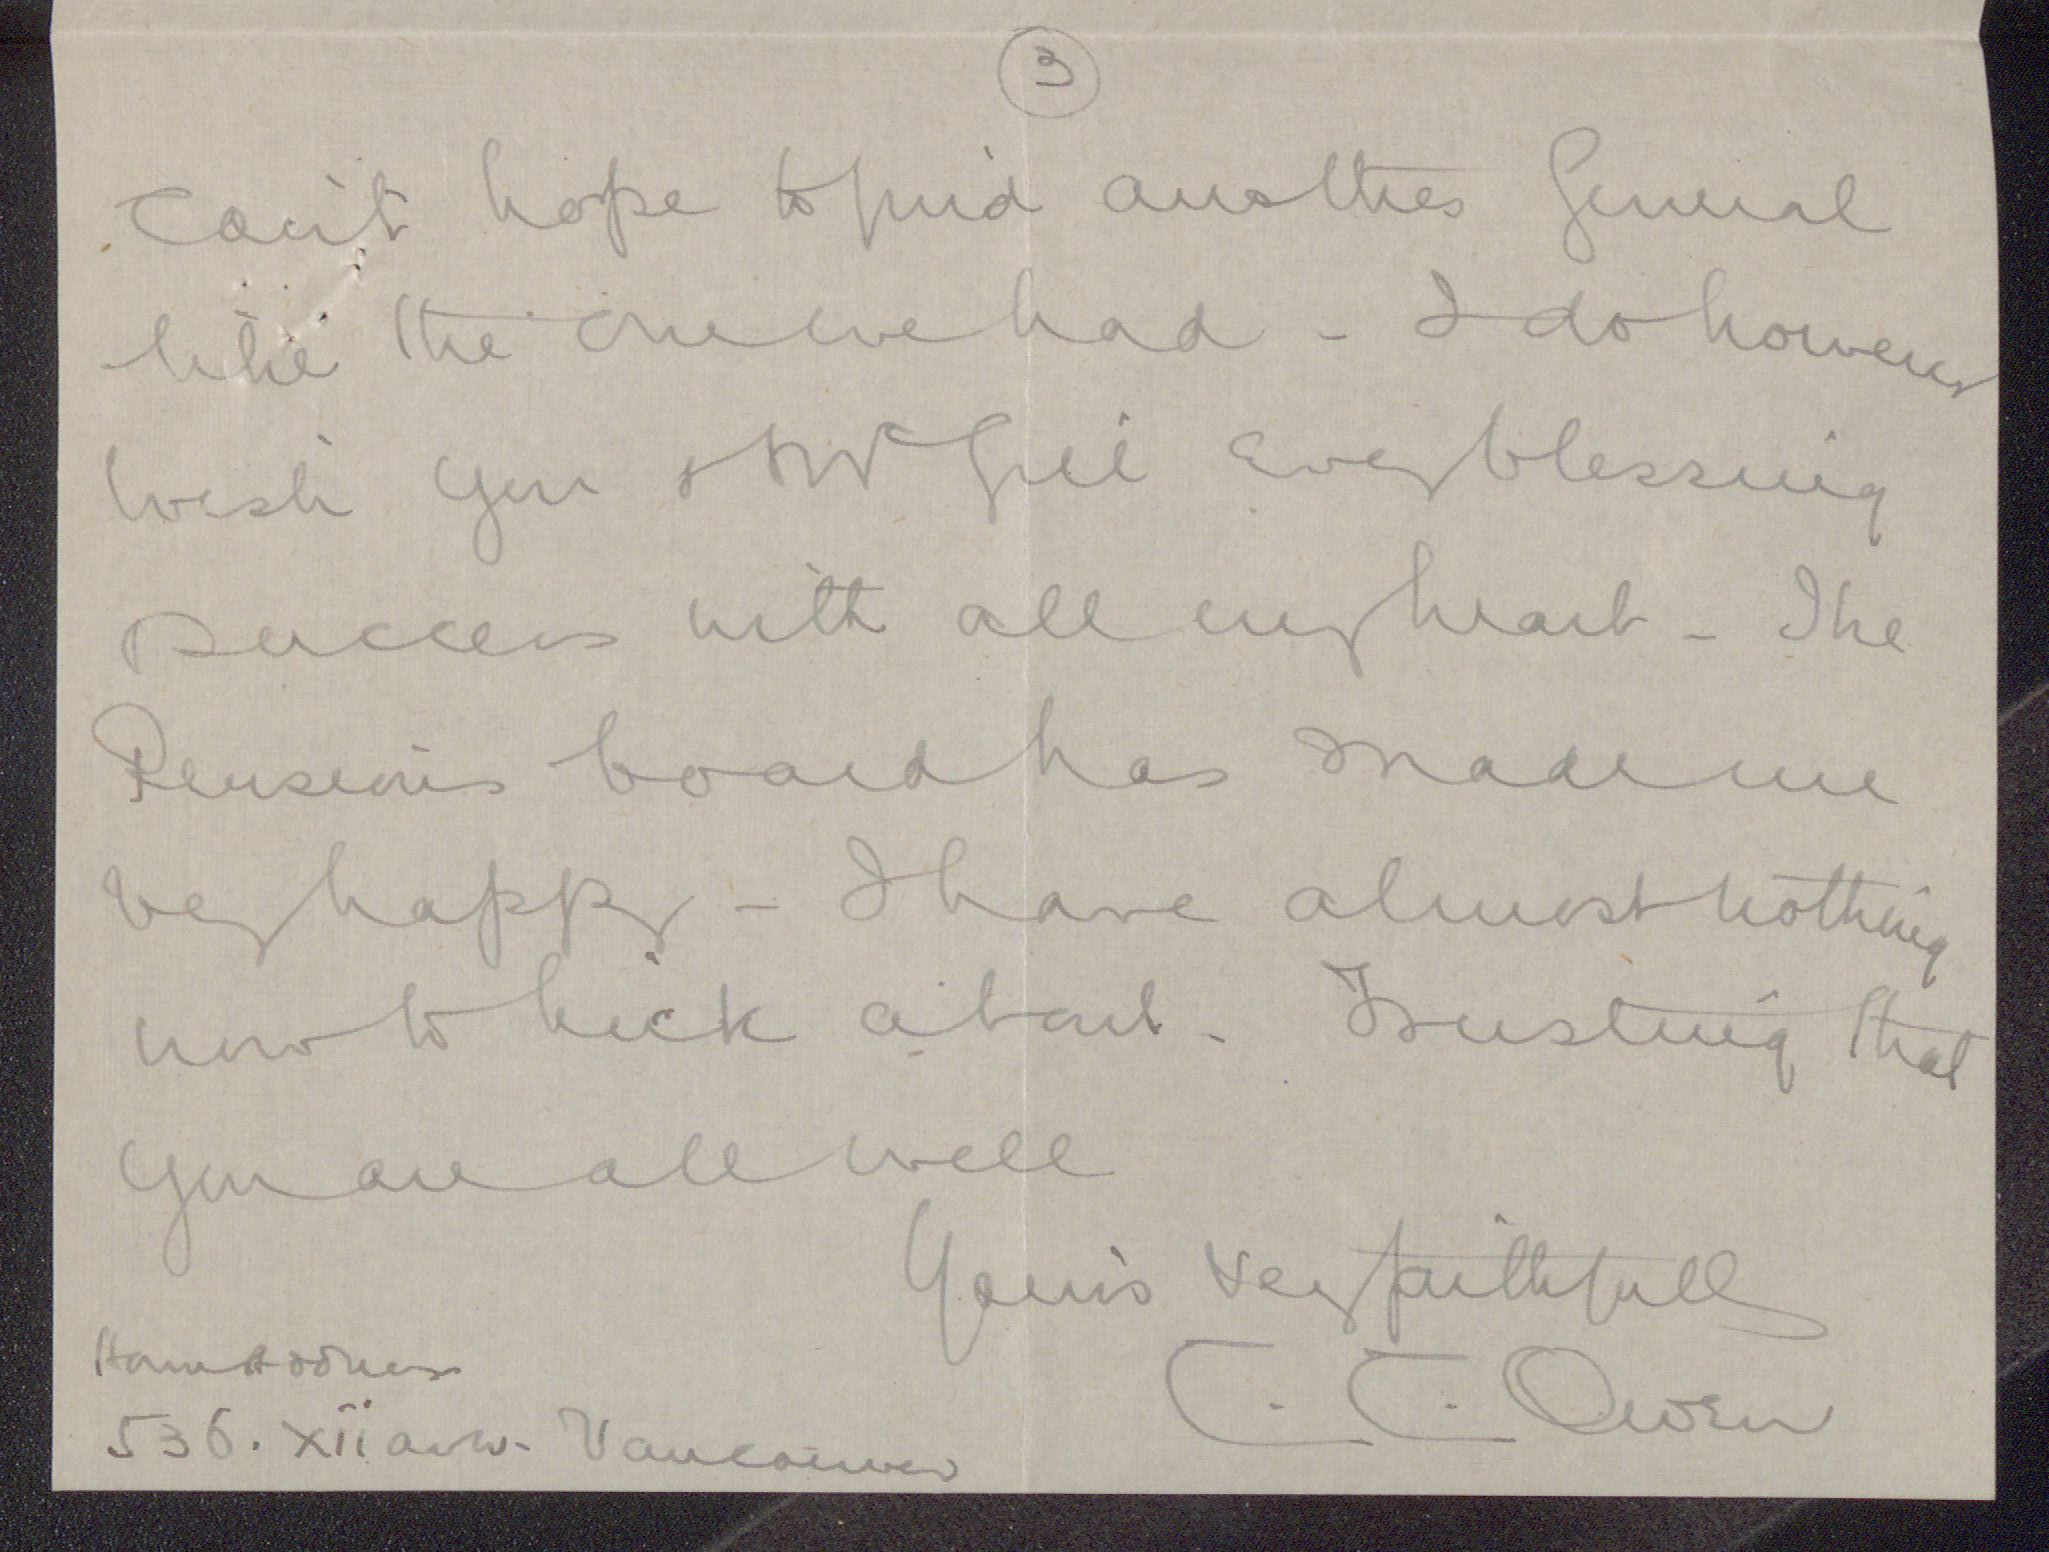 3
Can't hope to find another General
like the one we had - I do however
wish you & McGill every blessing
success with all my heart - The
Pensions board has made me
very happy - I have almost nothing
now to kick about. Trusting that
you are all well
Yours very faithfully
C. C. Owen
Home Address
536. XII av. w. Vancouver